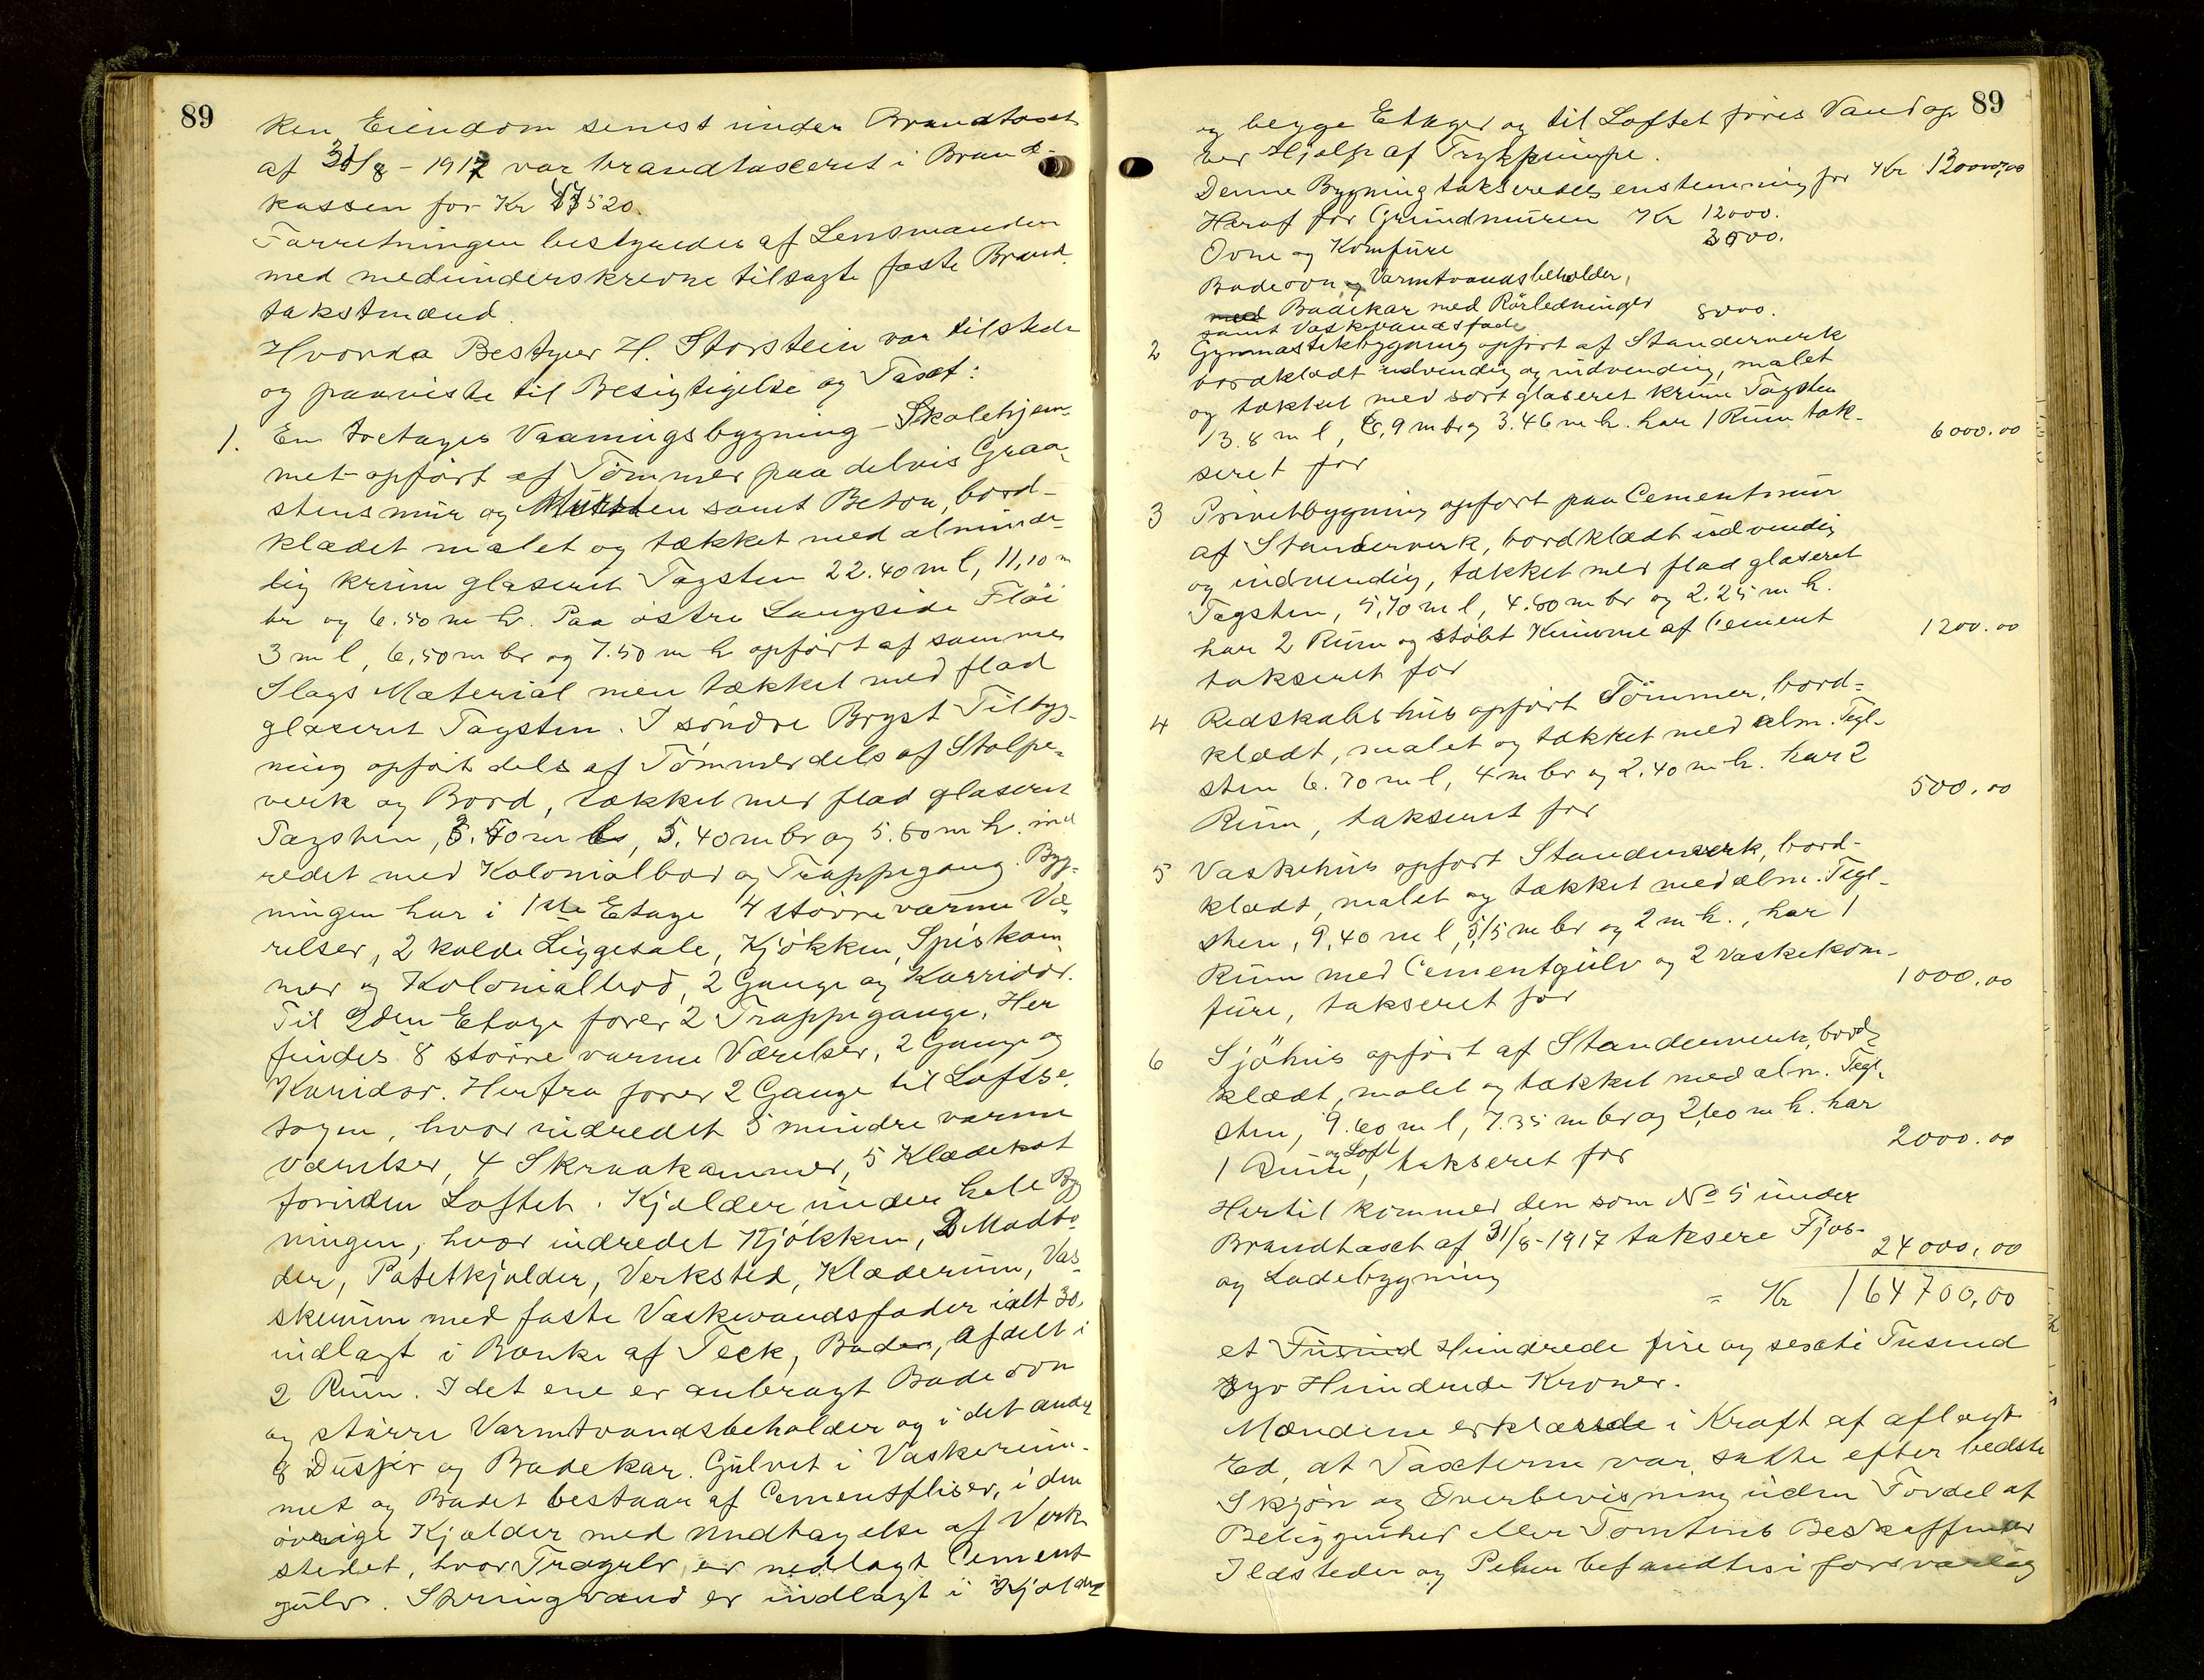 89
ken Eiendom senest under Brandtaxt
af 31/8 - 1917 var brandtaxeret i Brand-
kassen for Kr 47520.
Forretningen bestyredes af Lensmanden
med medunderskrevne tilsagte faste Brand
takstmænd.
Hvorda Bestyrer H. Storstein var tilstede
og paaviste til Besigtigelse og Taxt:
1. En toetages Vaaningsbygning - Skolehjem-
met opført af Tømmer paa delvis Graa-
stensmur og Mursten samt Beton, bord-
klædet malet og tækket med alminde-
lig krum glaseret Tagsten 22.40 m l, 11,10 m
br og 6.50 m h. Paa østre Langside Fløi
3 m l, 6,50 m br og 7.50 m h opført af samme
Slags Material men tækket med flad
glaseret Tagsten. I søndre Bryst Tilbyg-
ning opført dels af Tømmer dels af Stolpe-
verk og Bord, tækket med flad glaseret
Tagsten, 3.70 m l, 5.40 m br og 5.80 m h. ind
redet med Kolonialbod og Trappegang. Byg-
ningen har i 1ste Etage 4 større varme Væ-
relser, 2 kolde Liggesale, Kjøkken, Spiskam-
mer og Kolonialbod, 2 Gange og Korridor.
Til 2den Etage fører 2 Trappegange. Her
findes 8 større varme Værelser, 2 Gange og
Korridor. Herfra fører 2 Gange til Loftse-
tagen, hvor indredet 5 mindre varme
værelser, 4 Skraakammer, 5 Klædekot
foruden Loftet. Kjelder under hele Byg
ningen, hvor indredet Kjøkken, 2 Madbo-
der, Potetkjelder, Verksted, Klæderum, Vas-
skerum med faste Vaskevandsfader ialt 30,
indlagt i Bænke af Teck, Bader, Afdelt i
2 Rum. I det ene er anbragt Badeovn
og større Varmtvandsbeholder og i det andre
8 Dusjer og Badekar. Gulvet i Vaskerum-
met og Badet bestaar af Cementfliser, i den
øvrige Kjelder med Undtagelse af Verk-
stedet, hvor Trægulv, er nedlagt Cement
gulv. Springvand er indlagt i Kjelder
89
og begge Etager og til Loftet føres Vand op
ved Hjelp af Trykpumpe.
Denne Bygning takseredes enstemmig for Kr 130000,00
Heraf for Grundmuren Kr 12000.
Ovne og Komfure 3500.
Badeovn og Varmtvandsbeholder,
med Badekar med Rørledninger
samt Vaskevandsfade 8000.
2 Gymnastikbygning opført af Standerverk
bordklædt udvendig og indvendig, malet
og tækket med sort glaseret krum Tagsten
13.8 m l, 6,9 m br og 3.46 m h. har 1 Rum tak-
seret for 6000.00
3 Privetbygning opført paa Cementmur
af Standerverk, bordklædt udvendig
og indvendig, tækket med flad glaseret
Tagsten, 5,70 m l, 4.80 m br og 2.25 m h.
har 2 Rum og støbt Kumme af Cement
takseret for 1200.00
4 Redskabshus opført Tømmer, bord-
klædt, malet og tækket med alm. Tegl-
sten 6.70 m l, 4 m br og 2.40 m h. har 2
Rum, takseret for 500.00
5 Vaskehus opført Standerverk, bord-
klædt, malet og tækket med alm. Tegl-
sten, 9,40 m l, 5,15 m br og 2 m h., har 1
Rum med Cementgulv og 2 vaskekom-
fure, takseret for 1000.00
6 Sjøhus opført af Standerverk, bord-
klædt, malet og tækket med alm. Tegl-
sten, 9.60 m l, 7.35 m br og 2,60 m h. har
1 Rum og Loft, takseret for 2000.00
Hertil kommer den som No 5 under
Brandtaxt af 31/8-1917 taksere Fjøs-
og Ladebygning 24000,00
= Kr 164700,00
et Tusind Hundrede fire og sexti Tusind
syv Hundrede Kroner.
Mændene erklærede i Kraft af aflagt
Ed, at Taxterne var satte efter bedste
Skjøn og Overbevisning uden Fordel af
Beliggenhed eller Tomtens Beskaffenhed
Ildsteder og Peher befandtes i forsvarlig